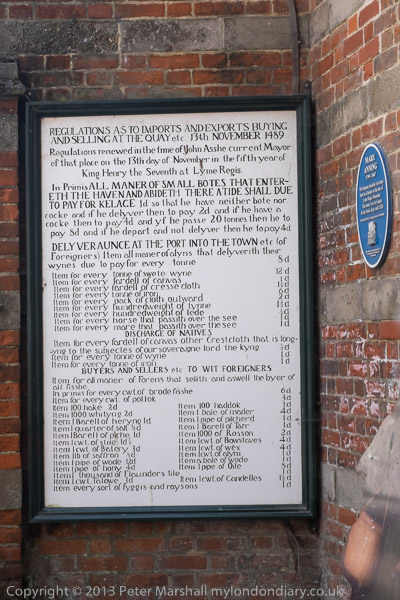 REGULATIONS AS TO IMPORTS AND EXPORTS BUYING
AND SELLING AT THE QUAY etc. 13th NOVEMBER 1489
Regulations renewed in the time of John Asshe current Mayor
of that place on the 13th day of November in the fifth year of
King Henry the Seventh at Lyme Regis.
In Primis ALL MANER OF SMALL BOTES THAT ENTER-
ETH THE HAVEN AND ABIDETH THERE A TIDE SHALL DUE
TO PAY FOR KELACE 1d so that he have neither bote nor
cocke and if he delyver then to pay 2d and if he have a
cocke then to pay 4d and yf he passe 20 tonnes then he to
pay 8d and if he depart and not delyver then he to pay 4d
DELYVERAUNCE AT THE PORT INTO THE TOWN etc (of
Foreigners) Item all maner of alyns that delyverith their
wynes due to pay for every tonne 8d
Item for every tonne of swete wyne 12d
Item for every fardell of canvas 1d
Item for every fardell of cresse cloth
Item for every tonne of iron 6d
Item for every pack of cloth outward 2d
Item for every hundredweight of tynne
Item for every hundredweight of lede
Item for every horse that passith over the see
Item for every mare that passith over the see 1d
DISCHARGE OF NATIVES
Item for every fardell of canvas other crestcloth that is long-
yng to the subjectes of our soveraigne lord the kyng
Item for every tonne of wyne
Item for every tonne of iron
BUYERS AND SELLERS etc TO WIT FOREIGNERS
Item for all maner of forens that sellith and aswell the byer of
all fisshe
In primis for every cwt of brode fisshe 6d
Item for every cwt of pollok 3d
Item 100 hake 2d Item 100 haddok 1d
Item 1000 whityng 2d Item 1 bale of mader 4d
Item 1 Barell of heryng 1d Item 1 pipe of picherd 1d
Item 1 quarter of salt Item 1 Barell of Tarr 1d
Item 1 Barell of piche 1d Item 1000 of Rosson 2d
Item 1 cwt of stuie 1d Item 1 cwt of Bowstaves 4d
Item 1 cwt of Batery 3d Item 1 cwt of wex 4d
Item 1 lib of saffron Item 1 cwt of alym 1d
Item 1 pipe of wode 12d Item a bale of wode 1d
Item 1 pipe of hony 4d Item 1 pipe of Oile 8d
Item 1 thousand of Flaunders tile 1d
Item 1 cwt Talowe 1d Item 1 cwt of Candelles 1d
Item every sort of fyggis and raysons
MARY
ANNING
Copyright © 2013 Peter Marshall mylondondiary.co.uk